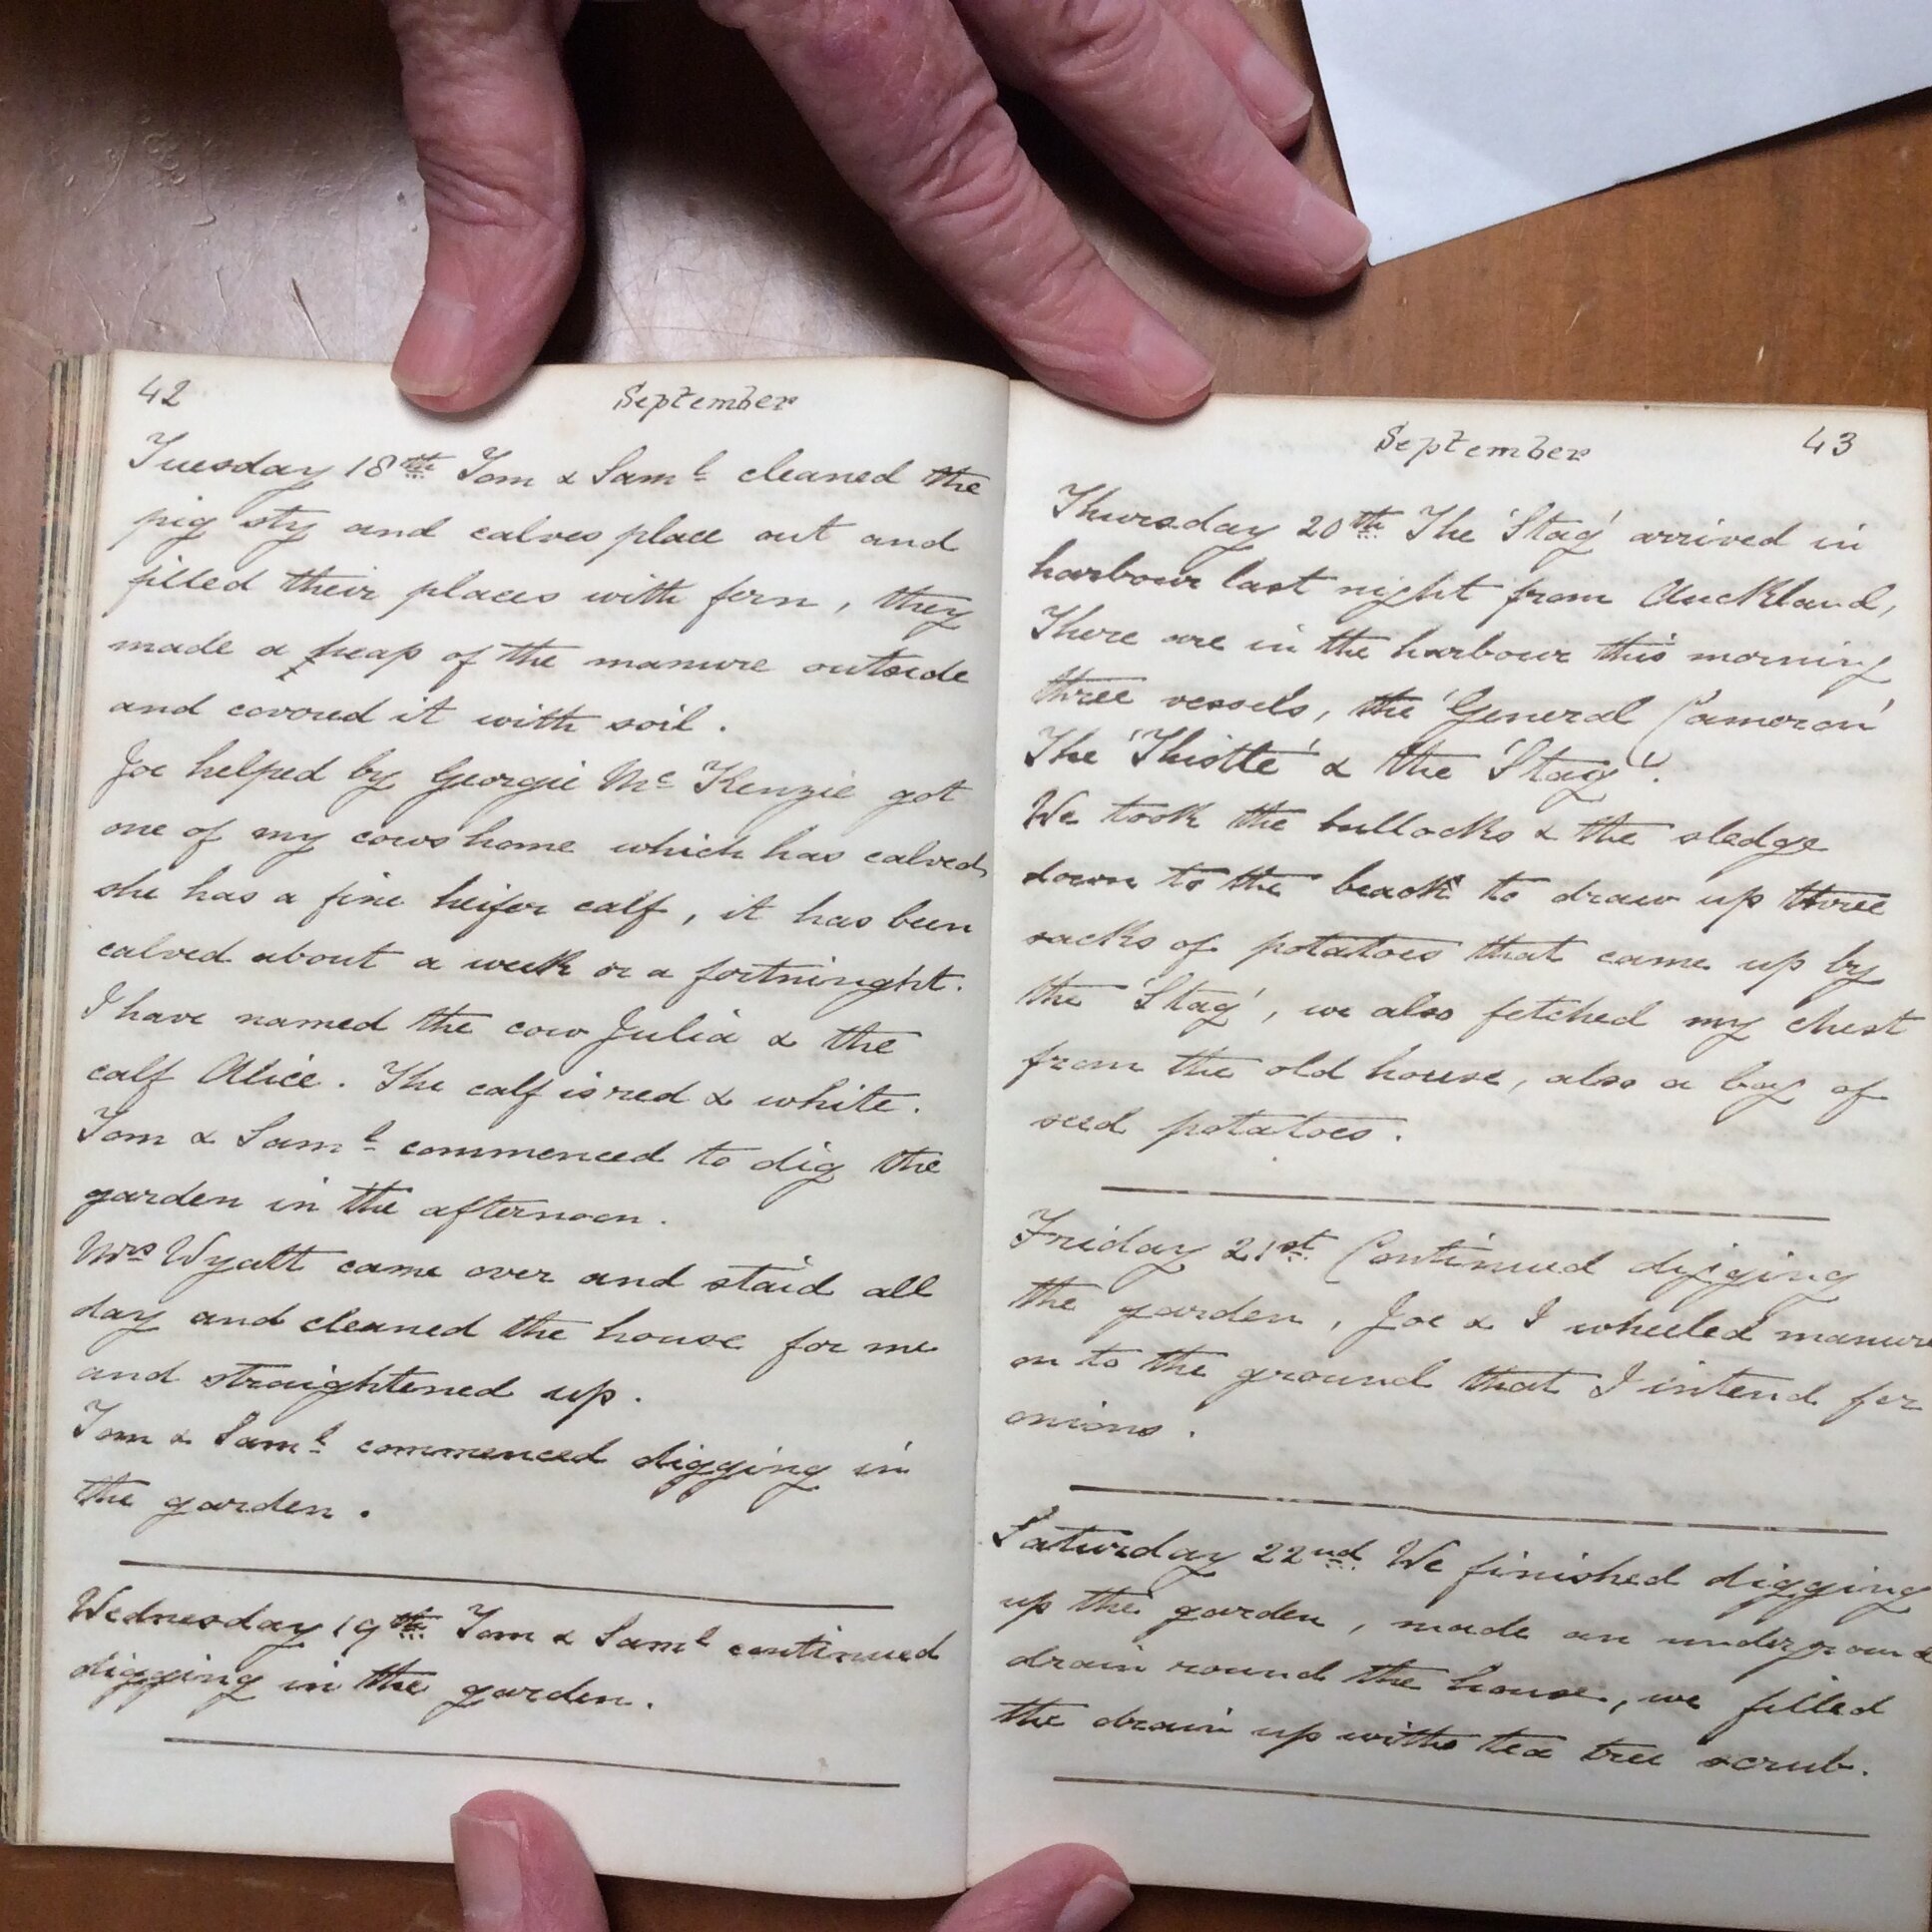 42 September
Tuesday 18th Tom & Saml cleaned the
pig sty and calves place out and
filled their places with fern, they
made a heap of the manure outside
and covored it with soil.
Joe helped by Georgie Mc Kenzie got
one of my cows home which has calved
she has a fine heifer calf, it has been
calved about a week or a fortninght.
I have named the cow Julia & the
calf Alice. The calf is red & white.
Tom & Saml commenced to dig the
garden in the afternoon.
Mrs Wyatt came over and staid all
day and cleaned the house for me
and straightened up.
Tom & Saml commenced digging in
the garden.
Wednesday 19th Tom & Saml continued
digging in the garden.
September 43
Thursday 20th The 'Stag' arrived in
harbour last night from Auckland,
There are in the harbour this morning
three vessels, the 'General Cameron'
The 'Thistle' & the 'Stag'.
We took the bullocks & the sledge
down to the beach to draw up three
sacks of potatoes that came up by
the 'Stag', we also fetched my chest
from the old house, also a bag of
seed potatoes.
Friday 21st Continued digging
the garden, Joe & I wheeled manure
on to the ground that I intend for
onions.
Saturday 22nd We finished digging
up the garden, made an underground
drain round the house, we filled
the drain up with tea tree scrub.